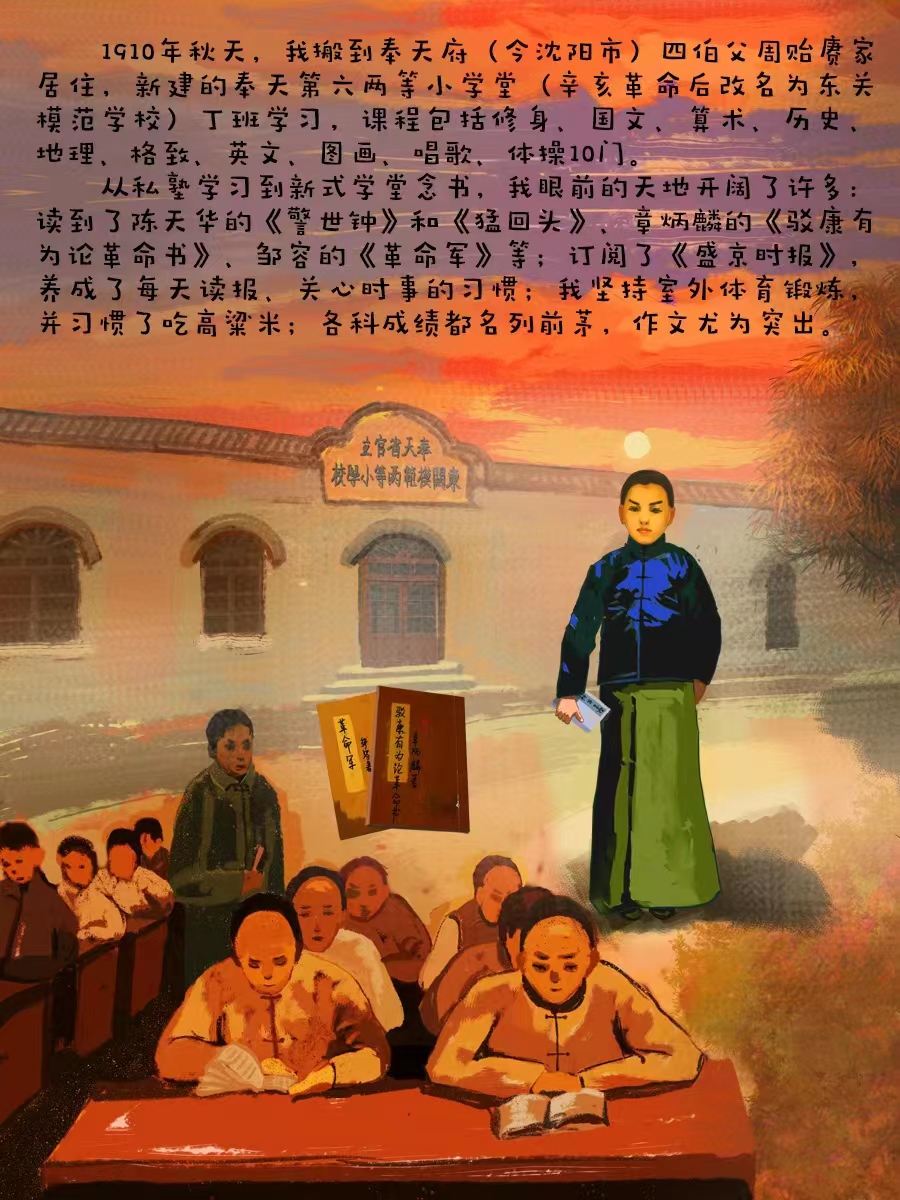 1910年秋天，我搬到奉天府（今沈阳市）四伯父周贻赓家
居住，新建的奉天第六两等小学堂（辛亥革命后改名为东关
模范学校）丁班学习，课程包括修身、国文、算术、历史、
地理、格致、英文、图画、唱歌、体操10门。
从私塾学习到新式学堂念书，我眼前的天地开阔了许多：
读到了陈天华的《警世钟》和《猛回头》、章炳麟的《驳康有
为论革命书》、邹容的《革命军》等；订阅了《盛京时报》，
养成了每天读报、关心时事的习惯；我坚持室外体育锻炼，
并习惯了吃高粱米；各科成绩都名列前茅，作文尤为突出。
立官省天奉
校學小等兩範模關東
革命军
邹容著
驳康有为论革命书
章炳麟著